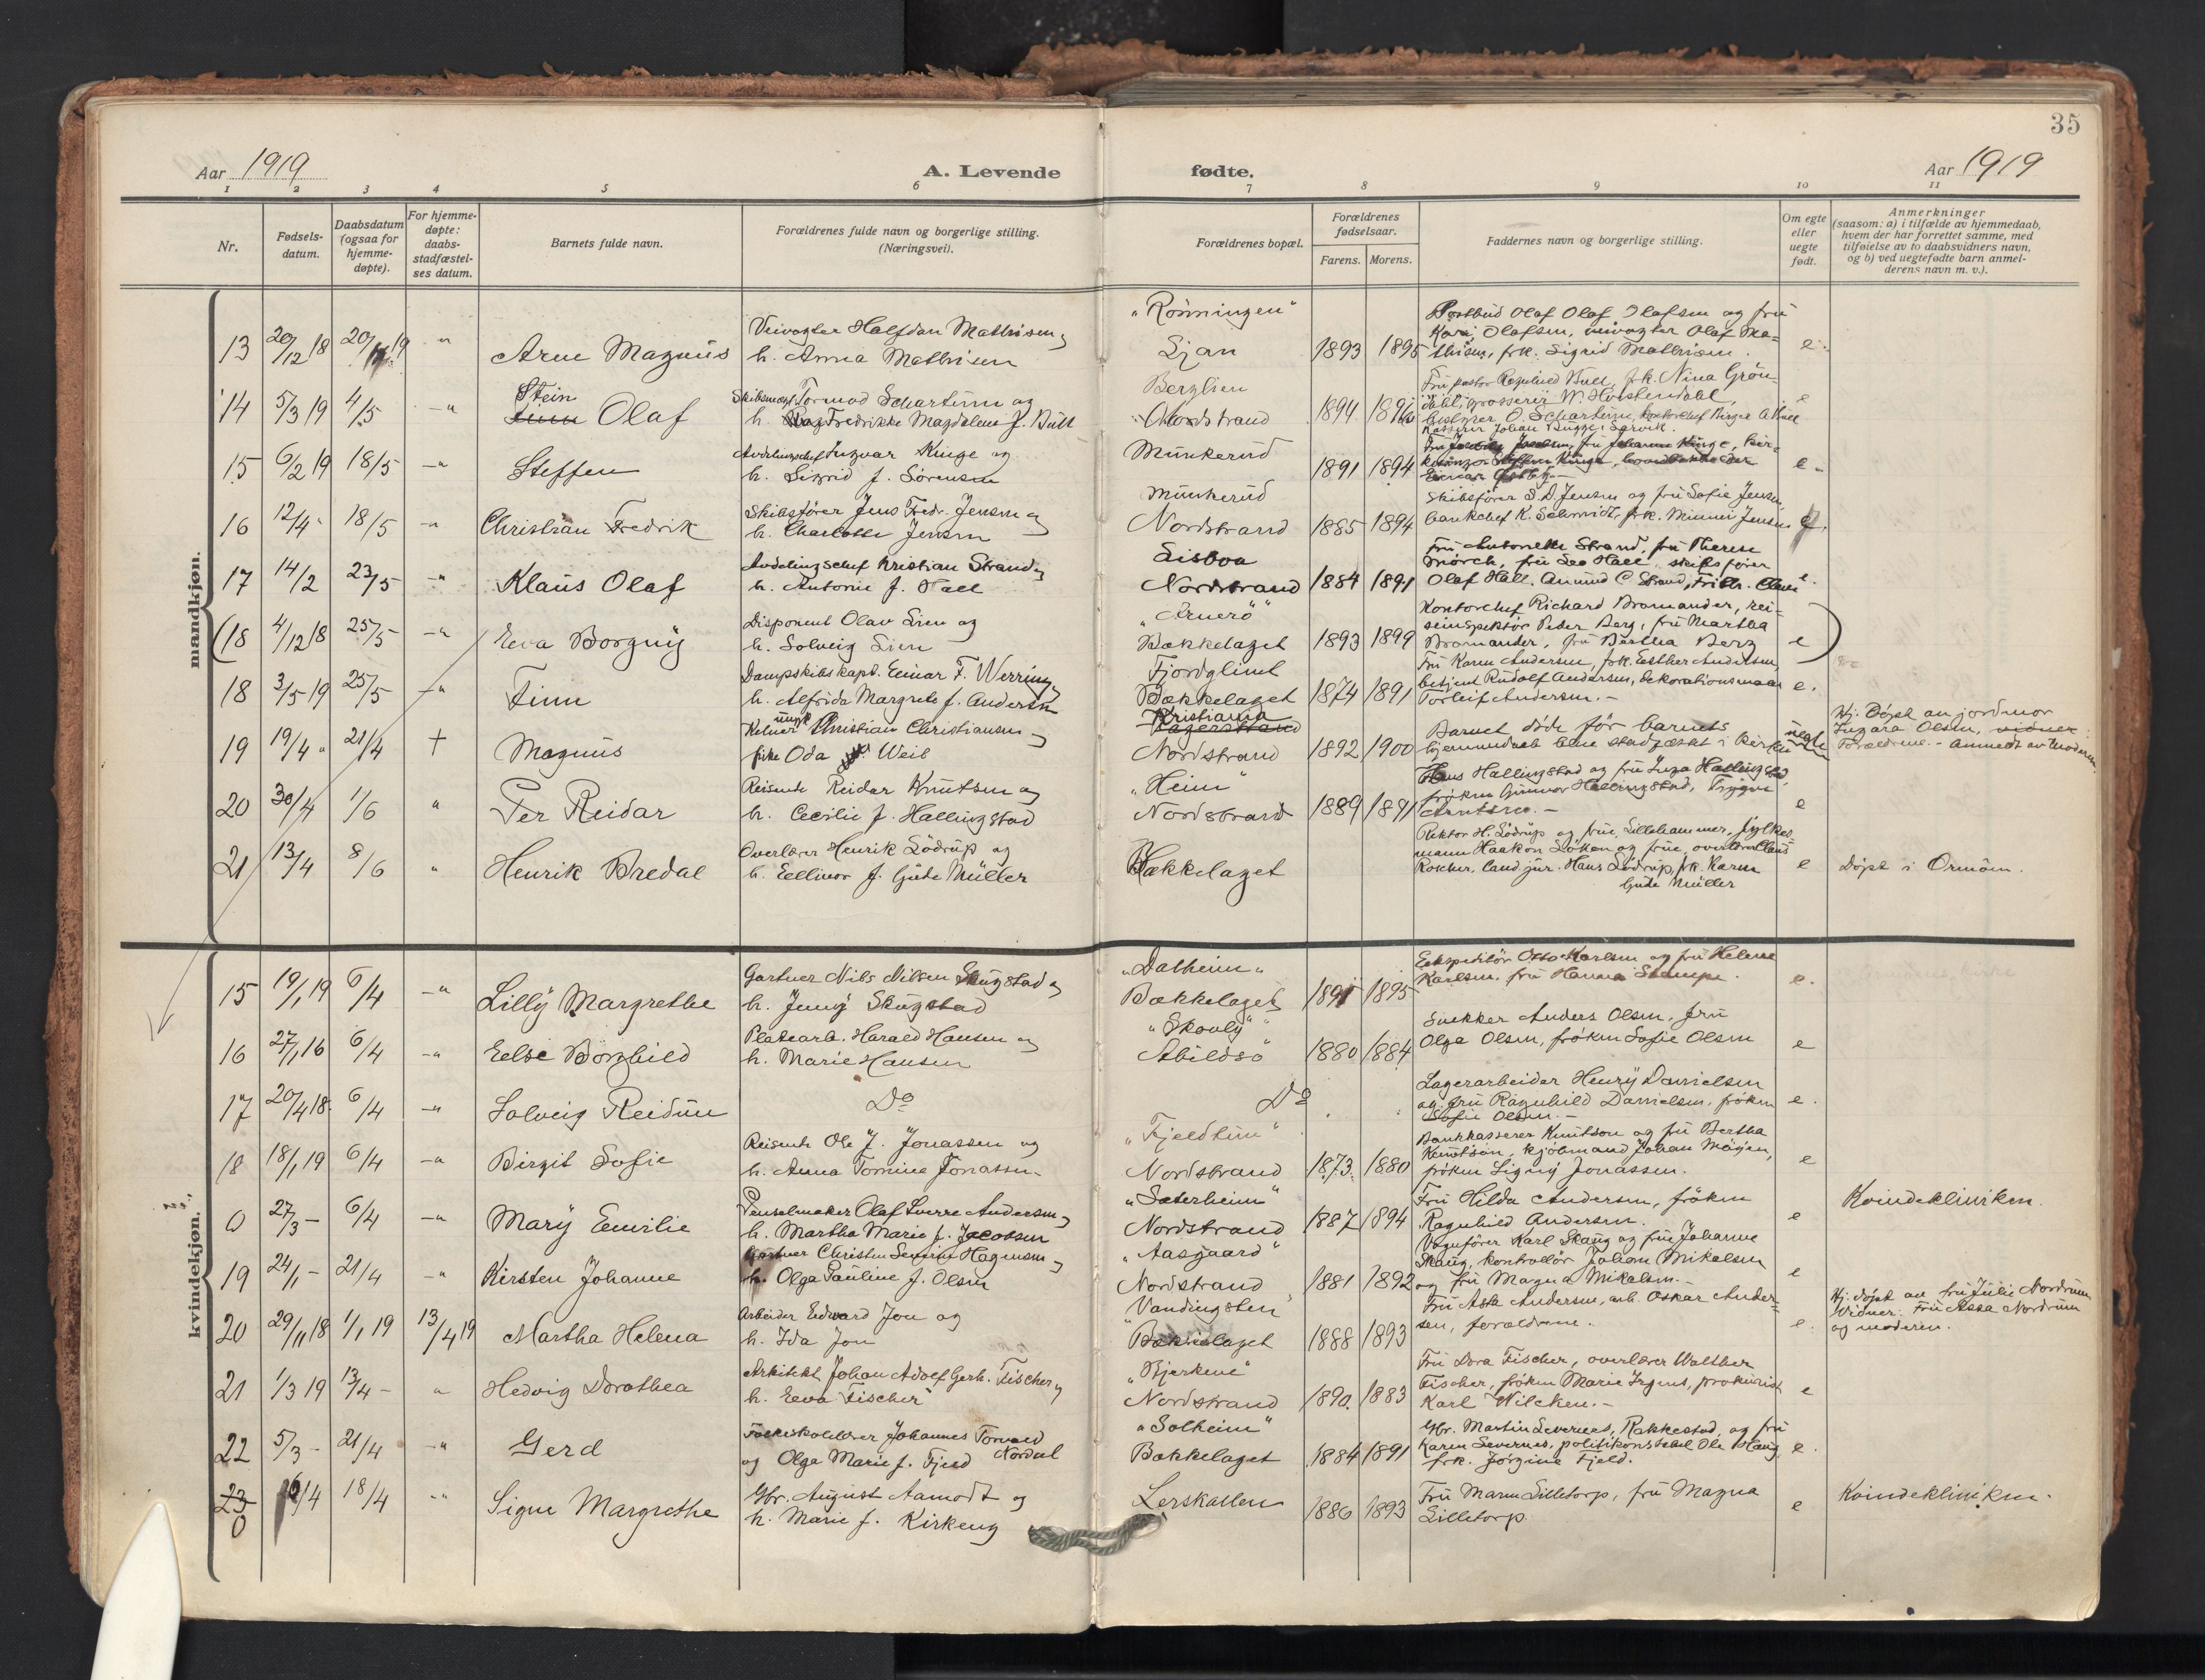 35
Aar 1919
A. Levende
fødte.
Aar 1919
1 2 3 4 5 6 7 8 9 10 11
Nr.
Fødsels-
datum.
Daabsdatum
(ogsaa for
hjemme-
døpte).
For hjemme-
døpte:
daabs-
stadfæstel-
ses datum.
Barnets fulde navn.
Forældrenes fulde navn og borgerlige stilling.
(Næringsvei).
Forældrenes bopæl.
Forældrenes
fødselsaar.
Farens. Morens.
Faddernes navn og borgerlige stilling.
Om egte
eller
uegte
født.
Anmerkninger
(saasom: a) i tilfælde av hjemmedaab,
hvem der har forrettet samme, med
tilføielse av to daabsvidners navn,
og b) ved uegtefødte barn anmel-
derens navn m. v.).
mandkjøn.
13 20/12 18 20/ 19 " Arne Magnus
Veivogter Halfdan Mathisen og
h. Anna Mathisen
"Rønningen"
Ljan 1893 1895
Postbud Olaf Olaf Olafsen og fru
Olafsen, veivogter Olaf Ma-
thisen, frk. Sigrid Mathisen. e.
14 5/3 19 4/5 -"- Stein
Olaf
Tormod Scharturn og
h. Fredrikke Magdalene f. Bull
Berglien
Nordstrand 1894
Fru pastor Ragnhild Bull, frk. Nina Grøn-
dahl, grosserer W. Holstendahl,
O. Scharturn, kontorchef Birger A. Bull
Kasserer Johan Bugge, e
15 6/2 19 18/5 -"- Steffen
Avdelingschef Ingvar Ringe og
h. Sigrid f. Sørensen
Munkerud 1891 1894
e
16 12/4 18/5 -"- Christian Fredrik
Skibsfører Jens Fredr. Jensen og
h. Charlotte Jensen
Munkerud
Nordstrand 1885 1894
Skibsfører S. D. Jensen og fru Sofie Jensen,
bankchef K. Schmidt, frk. Minni Jensen e.
17 14/2 23/5 -"- Klaus Olaf
Avdelingschef Kristian Strand og
h. Antonie f. Hall
Lisboa
Nordstrand 1884 1891
Fru Antonette Strand, fru Therese
Mørch, fru Leo Hall, skibsfører
Olaf Hall, Anund C Strand, e.
(18 4/12 18 25/5 -"- Eva Borgny
Disponent Olav Lien og
h. Solveig Lien
"Arnerø"
Bækkelaget 1893 1899
Kontorchef Richard Bromander, rei-
seinspektør Peder Berg, fru Martha
Bromander, fru Bertha Berg e )
18 3/5 19 25/5 -"- Finn
Dampskibskapt. Einar F. Werring og
h. Alfrida Margrete f. Andersen
Fjordglimt
Bækkelaget 1874 1891
Fru Karen Andersen, frk. Esther Andersen,
betjent Rudolf Andersen, dekorationsmaler
Torleif Andersen.- e.
19 19/4 21/4 † Magnus
Kelner ungk. Christian Christiansen og
pike Oda Weib
Kristiania
Nordstrand 1892 1900
Barnet døde før barnets
hjemmedaab blev stadfæstet i kirken uegte
Hj. Døpt av jordmor
Ingara Olsen, vidner:
Forældrene.- Anmeldt av Moderen.
20 30/4 1/6 " Per Reidar
Reisende Reidar Knutsen og
h. Cecilie f. Hallingstad
"Heim"
Nordstrand 1889 1891
Hans Hallingstad og fru Inga Hallingstad,
frøken Gunvor Hallingstad, Trygve
Arntsen.- e
21 13/4 8/6 " Henrik Bredal
Overlærer Henrik Lödrup og
h. Ellinor f. Gude Müller
Bækkelaget
Rektor H. Lödrup og frue, Lillehammer, fylkes-
mann Haakon Löken og frue, overlærer Claus
cand. jur. Hans Lödrup, frk. Karen
Gude Müller e
Døpt i Ormöen.
kvindekjøn.
15 19/1 19 6/4 -"- Lilly Margrethe
Gartner Nils Nilsen Skugstad og
h. Jenny Skugstad
"Dalheim"
Bækkelaget 1891 1895
Ekspeditör Otto Karlsen og fru Helene
Karlsen, fru Hanna Stampe. e.
16 27/1 16 6/4 -"- Else Borghild
Platearb. Harald Hansen og
h. Marie Hansen
"Skovly"
Abildsö 1880 1884
Snekker Anders Olsen, fru
Olga Olsen, frøken Sofie Olsen e
17 20/4 18 6/4 -"- Solveig Reidun
Do
Do
Lagerarbeider Henry Danielsen
og fru Ragnhild Danielsen, frøken
Sofie Olsen.- e.
18 18/1 19 6/4 -"- Birgit Sofie
Reisende Ole J. Jonassen og
h. Anna Tomine Jonassen
"Fjeldtun"
Nordstrand 1873 1880
Bankkasserer Knutson og fru Bertha
Knutson, kjøbmand Johan
frøken Signy Jonassen. e
0 27/3 - 6/4 -"- Mary Emilie
Penselmaker Olaf Sverre Andersen og
h. Martha Marie f. Jacobsen
"Sæterheim"
Nordstrand 1887 1894
Fru Hilda Andersen, frøken
Ragnhild Andersen. e
Kvindekliniken.
19 24/1 - 21/4 -"- Kirsten Johanne
Gartner Christen Severin Hagensen og
h. Olga Pauline f. Olsen
"Aasgaard"
Nordstrand 1881 1892
Vognfører Karl Skaug og frue Johanne
Skaug, kontrollör Johan Mikalsen
og fru Magna Mikalsen.- e
20 29/11 18 1/1 19 13/4 19 Martha Helena
Arbeider Edvard Jon og
h. Ida Jon
"Vandingsten"
Bækkelaget 1888 1893
Fru Asta Andersen, arb. Oskar Ander-
sen, forældrene. e.
Hj. døpt av fru Julie Nordrum
Vidner: Fru Aasa Nordrum
og moderen.
21 1/3 19 13/4 - " Hedvig Dorothea
Arkitekt Johan Adolf Gerh. Fischer og
h. Eva Fischer
"Bjerkene"
Nordstrand 1890 1883
Fru Dora Fischer, overlærer Walther
Fischer, frøken Marie Irgens, prokurist
Karl Wilcken.- e
22 5/3 - 21/4 -"- Gerd
Folkeskolelærer Johannes Torvald
Nordal
og Olga Marie f. Fjeld
"Solheim"
Bækkelaget 1884 1891
Gbr. Martin Severnes, Rakkestad, og fru
Karen Severnes, politikonstabel Ole Haug,
frk. Jørgine Fjeld. e.
23
0 6/4 18/4 -"- Signe Margrethe
Gbr. August Aamodt og
h. Marie f. Kirkeng
Lerskallen 1886 1893
Fru Maren Lilletorp, fru Magna
Lilletorp. e
Kvindekliniken.